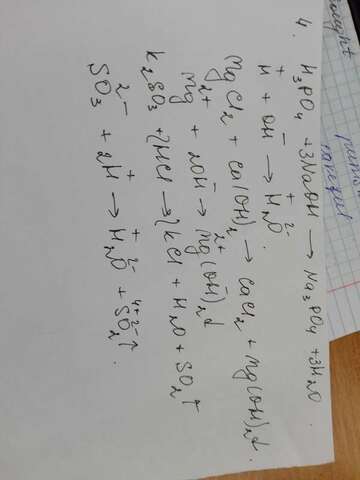 4. H₃PO₄ + 3NaOH → Na₃PO₄ + 3H₂O.
H⁺ + OH⁻ → H₂⁺O²⁻.
MgCl₂ + Ca(OH)₂ → CaCl₂ + Mg(OH)₂↓.
Mg²⁺ + 2OH⁻ → Mg²⁺(OH⁻)₂↓
K₂SO₃ + 2HCl → 2KCl + H₂O + SO₂↑
SO₃²⁻ + 2H⁺ → H₂⁺O²⁻ + S⁴⁺O₂²⁻↑.